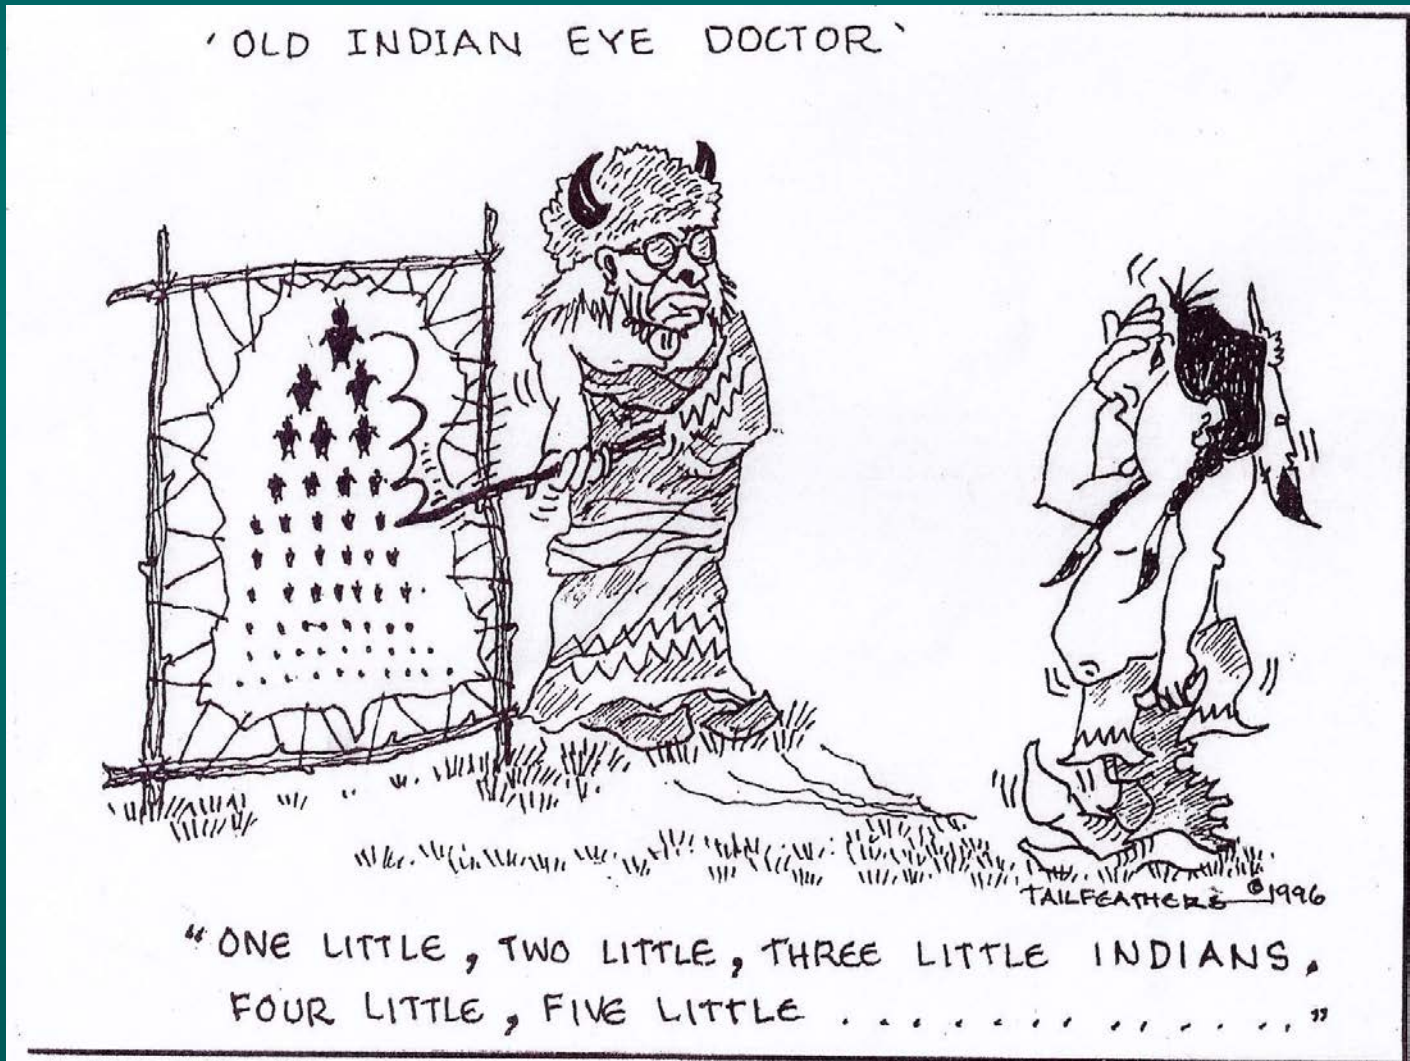 'OLD INDIAN EYE DOCTOR'
TAILFEATHERS ©1996
"ONE LITTLE, TWO LITTLE, THREE LITTLE INDIANS,
FOUR LITTLE, FIVE LITTLE ............."